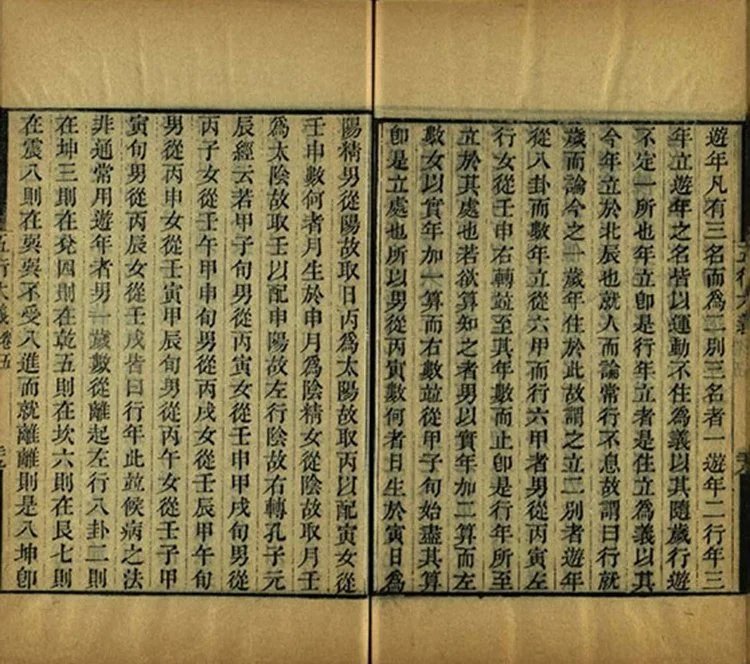 遊年凡有三名而爲二別三名者一遊年二行年三
年立遊年之名皆以運動不住爲義以其隨歲行遊
不定一所也年立卽是行年立者是住立爲義以其
今年立於北辰也就人而論常行不息故謂曰行就
歲而論今之一歲年住於此故謂之立二別者遊年
從八卦而數年立從六甲而行六甲者男從丙寅左
行女從壬申右轉竝至其年數而止卽是行年所至
立於其處也若欲算知之者男以實年加二算而左
數女以實年加一算而右數竝從甲子旬始盡其算
卽是立處也所以男從丙寅數何者日生於寅日爲
陽精男從陽故取日丙爲太陽故取丙以配寅女從
壬申數何者月生於申月爲陰精女從陰故取月壬
爲太陰故取壬以配申陽故左行陰故右轉孔子元
辰經云若甲子旬男從丙寅女從壬申甲戌旬男從
丙子女從壬午甲申旬男從丙戌女從壬辰甲午旬
男從丙申女從壬寅甲辰旬男從丙午女從壬子甲
寅旬男從丙辰女從壬戌皆曰行年此竝候病之法
非通常用遊年者男一歲數從離起左行八卦二則
在坤三則在兌四則在乾五則在坎六則在艮七則
在震八則在巽巽不受八進而就離離則是八坤卽
五行大義卷五